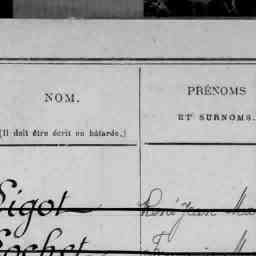 NOM.
(Il doit être écrit en bâtarde.)
PRÉNOMS
ET SURNOMS.
Sigot
René Jean